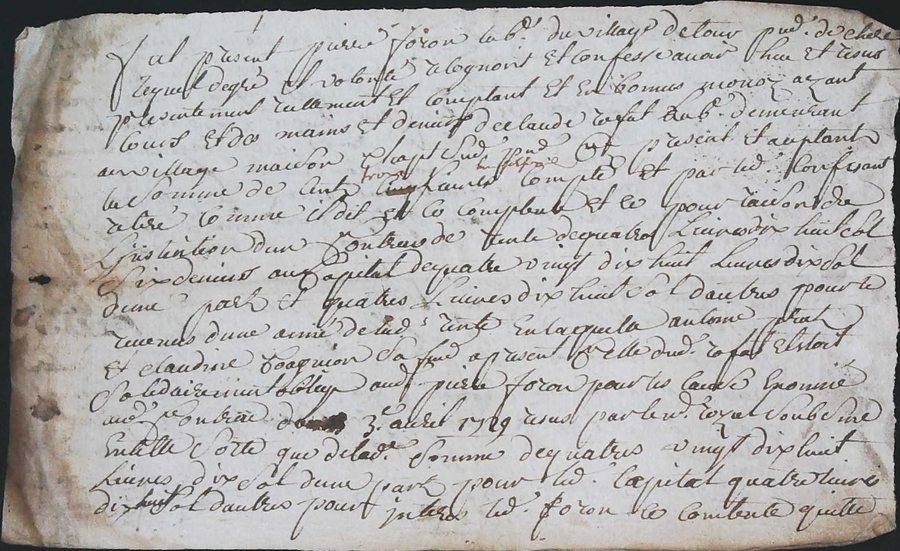 fut present pierre foron lab.r du village detour pud. de chere
lequel de gré et volonté recognoit et confesse avoir heu et resus
presentement reellement et comptant et en bonnes monoy ayant
cours et des mains et deniers de claude rofat lab.r demeurant
au village maison present et acceptant
la somme de cent trois livres compte et par led. confessant
retiré comme il dit et ce comptent et ce pour raison de
L'instention d'un contrau de rente de quatre Livres dix huit sol
six deniers au Capital de quatre vingt dix huit Livres dix sol
d'une part et quatres Livres dix huit sol d'autres pour le
revenus d'une anné de lad. rente en laquelle antoine
et claudine sa fem a present elle dud. rofat Estoit
solidairement oblige aud. pierre foron pour les cause Enonné
aud. Contrau du 3.e avril 1719 resus par le nd. royal soubsine
En telle sorte que de lad. somme de quatres vingt dix huit
Livres dix sol d'une part pour led. Capital quatre livres
dix huit sol d'autres pour interes led. foron ce contente quitte